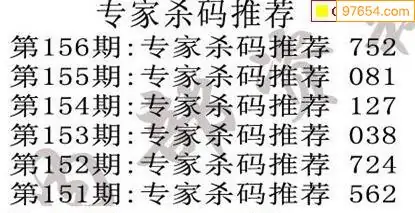 专家杀码推荐
97654.com
第156期:专家杀码推荐 752
第155期:专家杀码推荐 081
第154期:专家杀码推荐 127
第153期:专家杀码推荐 038
第152期:专家杀码推荐 724
第151期:专家杀码推荐 562